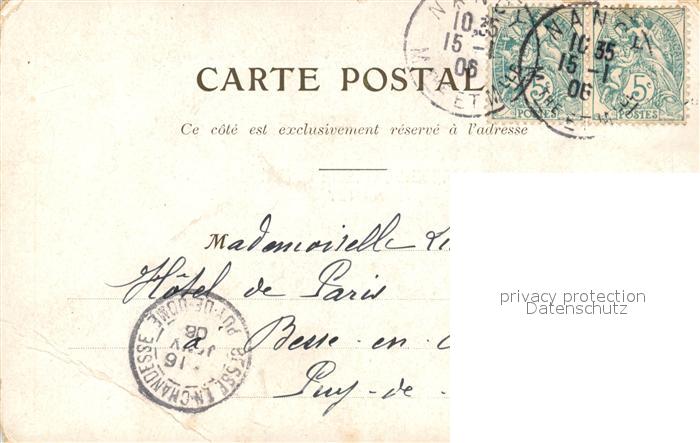 NANCY
10.35
15-1
06
NANCY
10.35
15-1
06
MTHE ET MLLE
5c 5c
POSTES POSTES
CARTE POSTALE
Ce côté est exclusivement réservé à l'adresse
Mademoiselle
Hôtel de Paris
à Besse-en-
Puy-de-
BESSE EN CHANDESSE
16
JANV
06
PUY-DE-DOME
privacy protection
Datenschutz